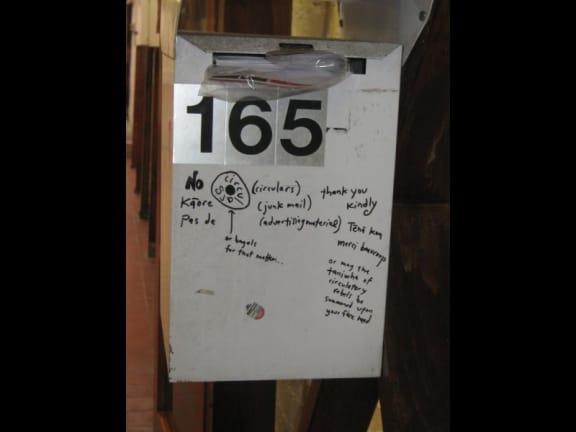 165
No CIRCULARS (circulars) thank you
Kāore (junk mail) kindly
Pas de (advertising material) Tēnā koe
merci beaucoup
or bagels
for that matter...
or may the
taniwha of
circulatory
rebels be
summoned upon
your